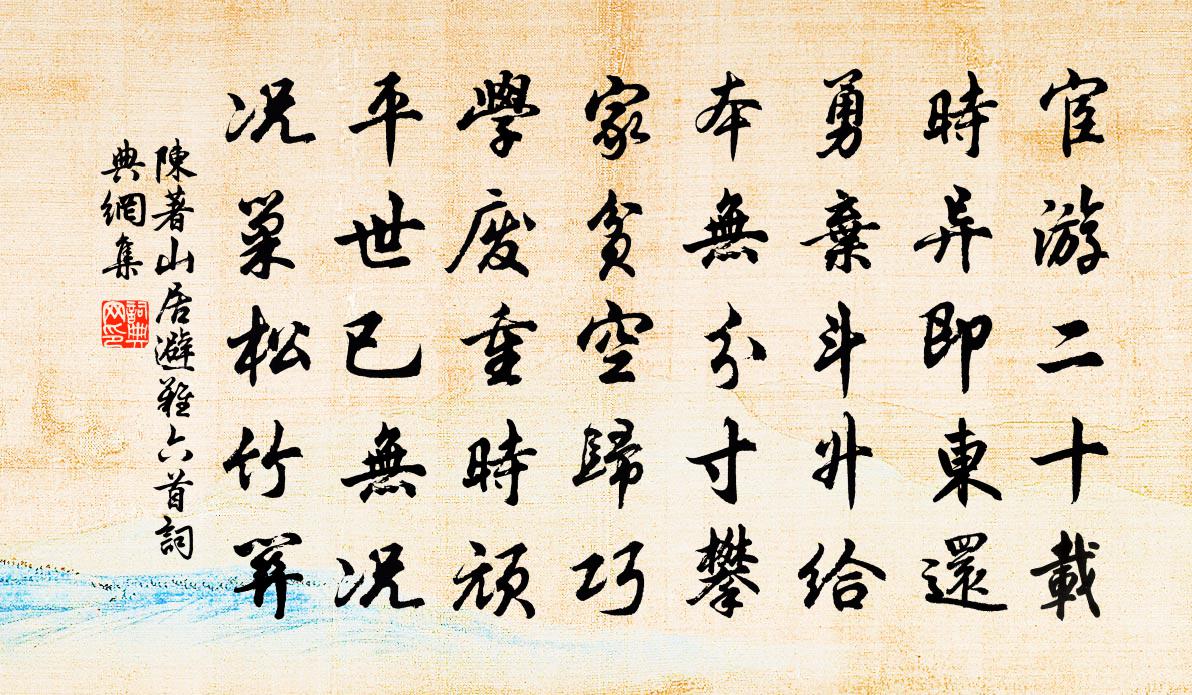 宦游二十載
時异即東還
勇棄斗升給
本無分寸攀
家貧空歸巧
學废重時頑
平世已無况
况巢松竹
陳著山居避難六首詞
典網集
詞典网印